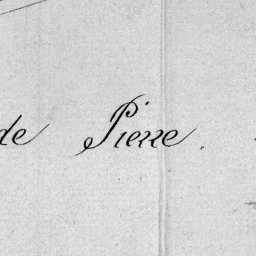 de Pierre.